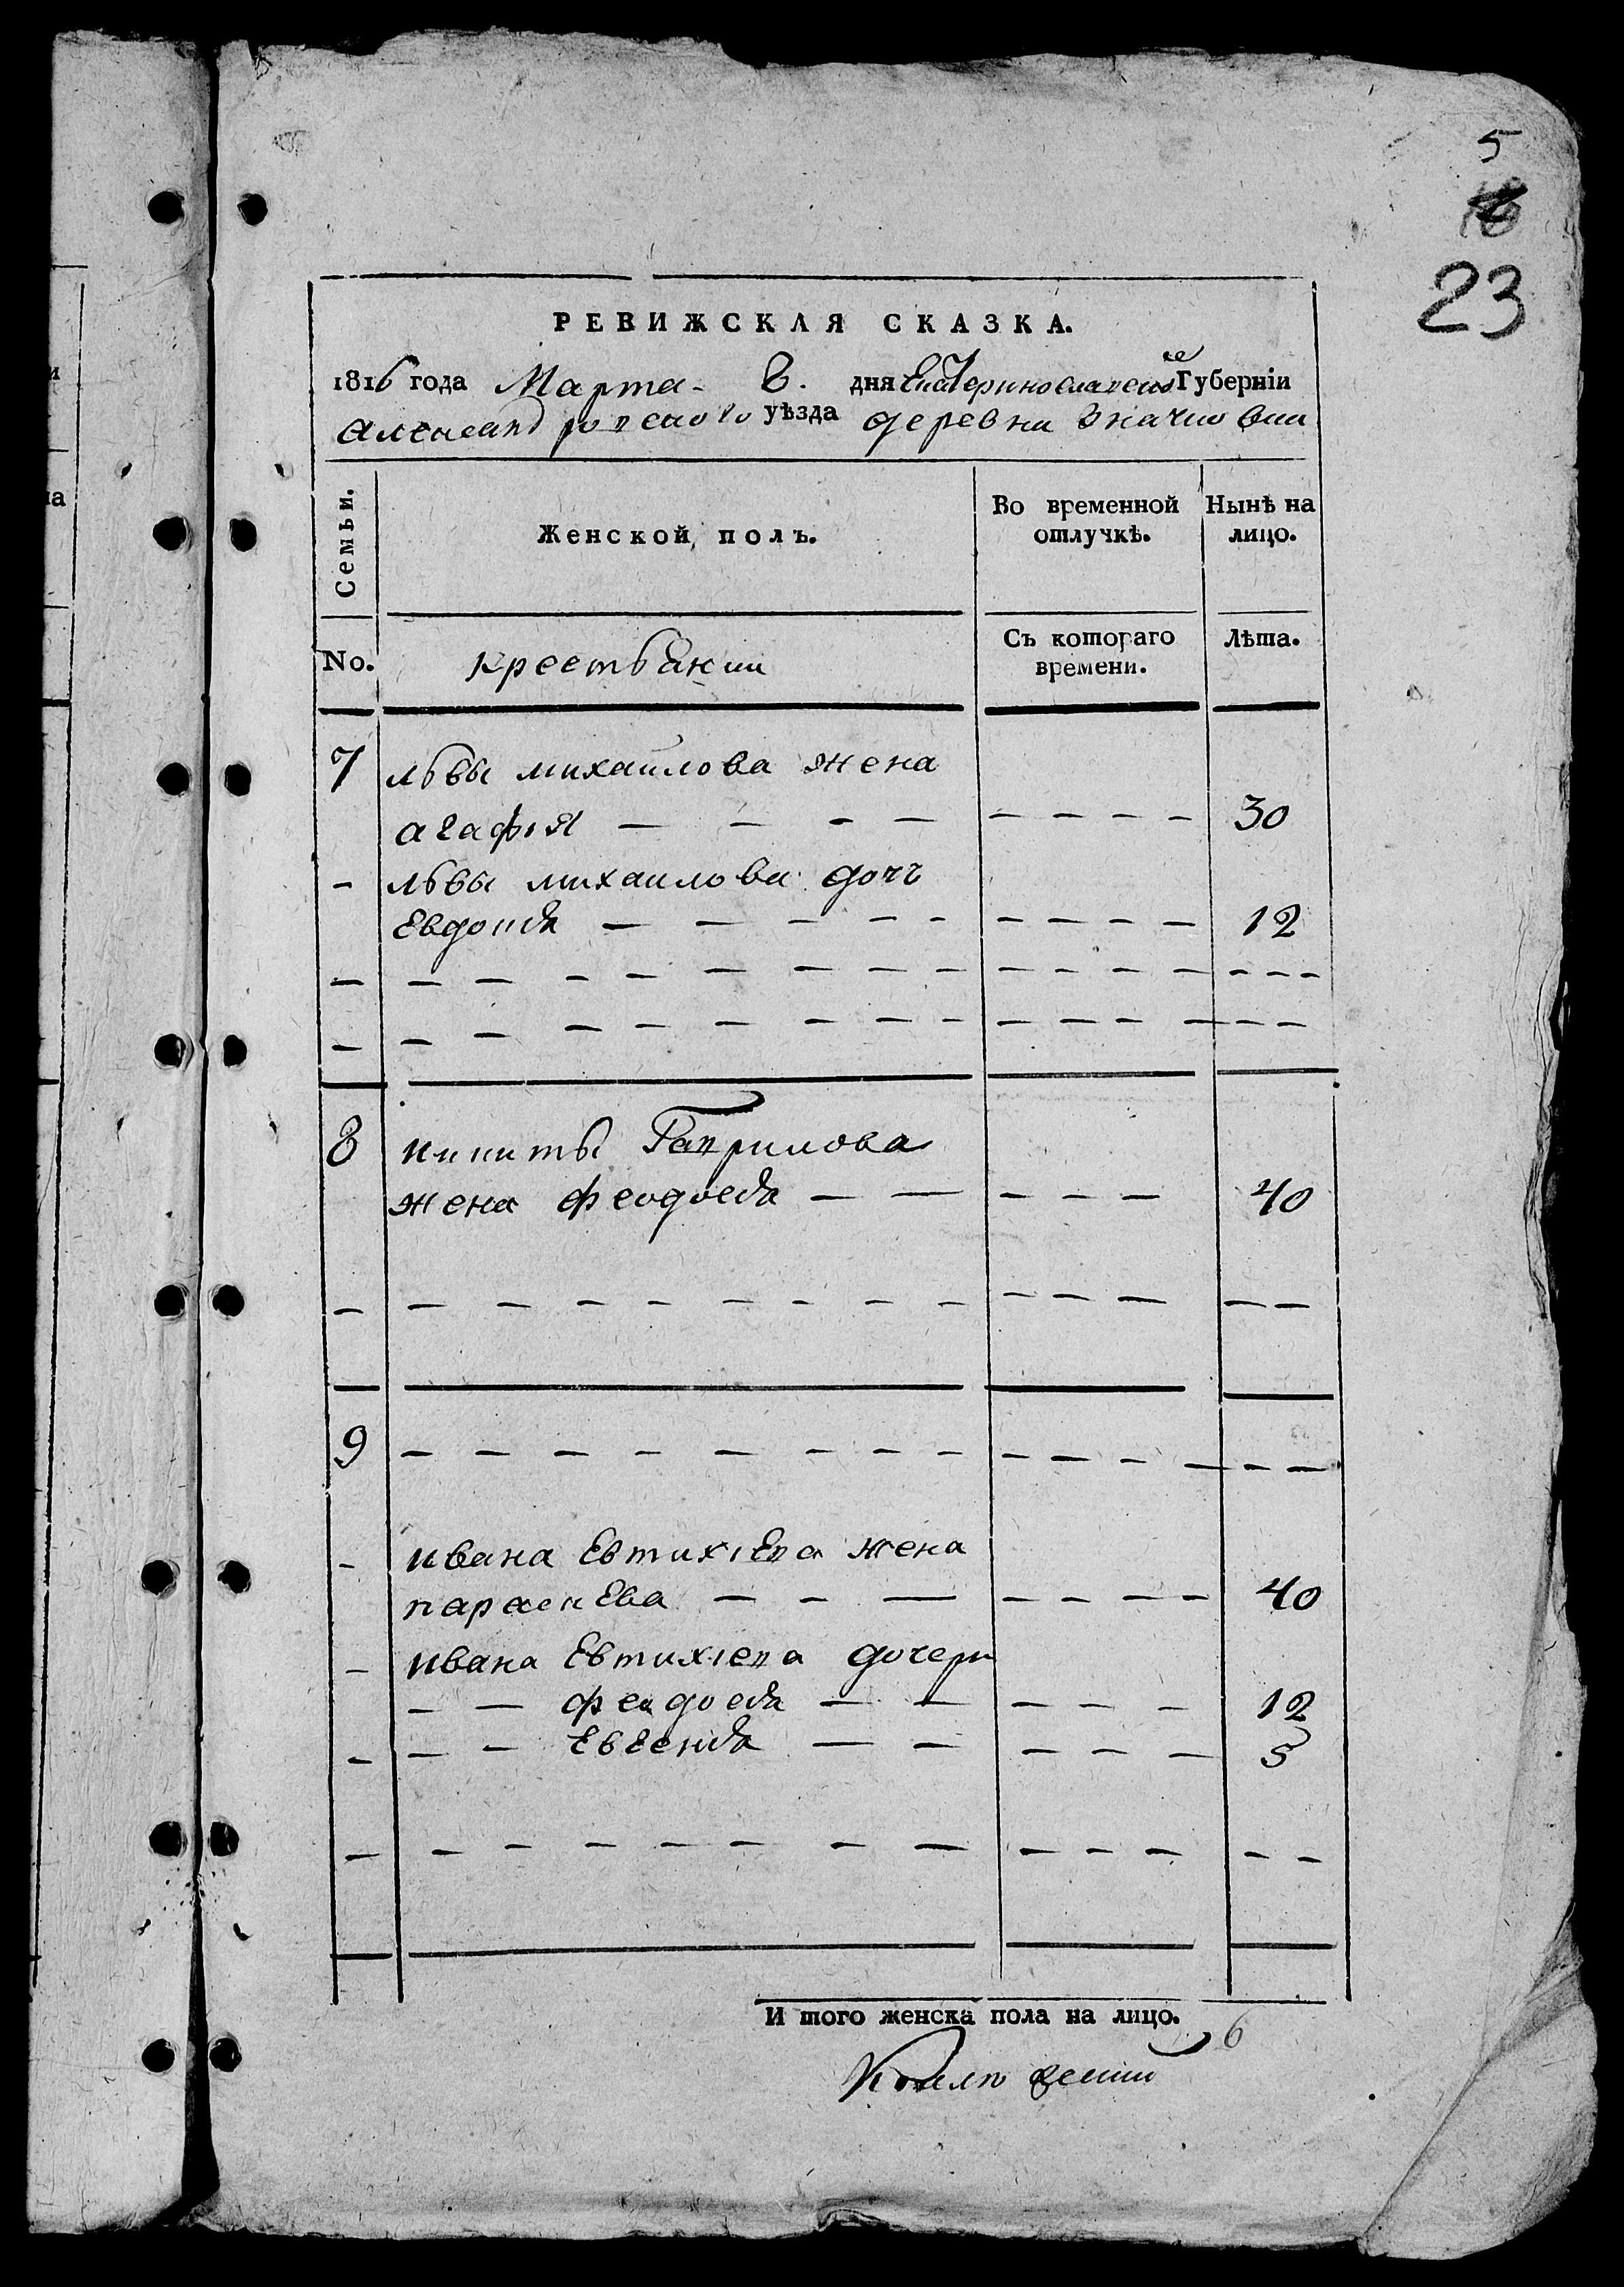 5
23
РЕВИЖСКАЯ СКАЗКА.
1816 года Марта 8. дня Екатеринославской Губернїи
Александровского уѣзда деревни Значковки
Семьи.
Женской полъ.
Во временной отлучкѣ.
Нынѣ на лицо.
No.
крестьянки
Съ котораго времени.
Лѣта.
7 львы михайлова жена
агафїя — — — — — — — — 30
- львы михайлова дочь
Евдокїя — — — — — — — — — 12
8 никиты Гаврилова
жена феодосїя — — — — — 40
9
- ивана Евтихїева жена
параскева — — — — — — — 40
- ивана Евтихїева дочери
— — феодосїя — — — — — 12
- — — Евгенїя — — — — — — 5
И того женска пола на лицо. 6
и
а